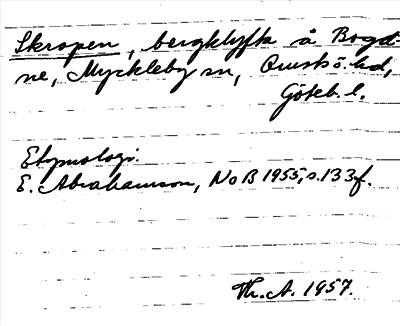 Skropen, bergklyfta å Bogd-
ne, Myckleby sn, Orusts hd,
Göteb. l.
Etymologi.
E. Abrahamson, NoB 1955, s. 133f.
Th. A. 1957.